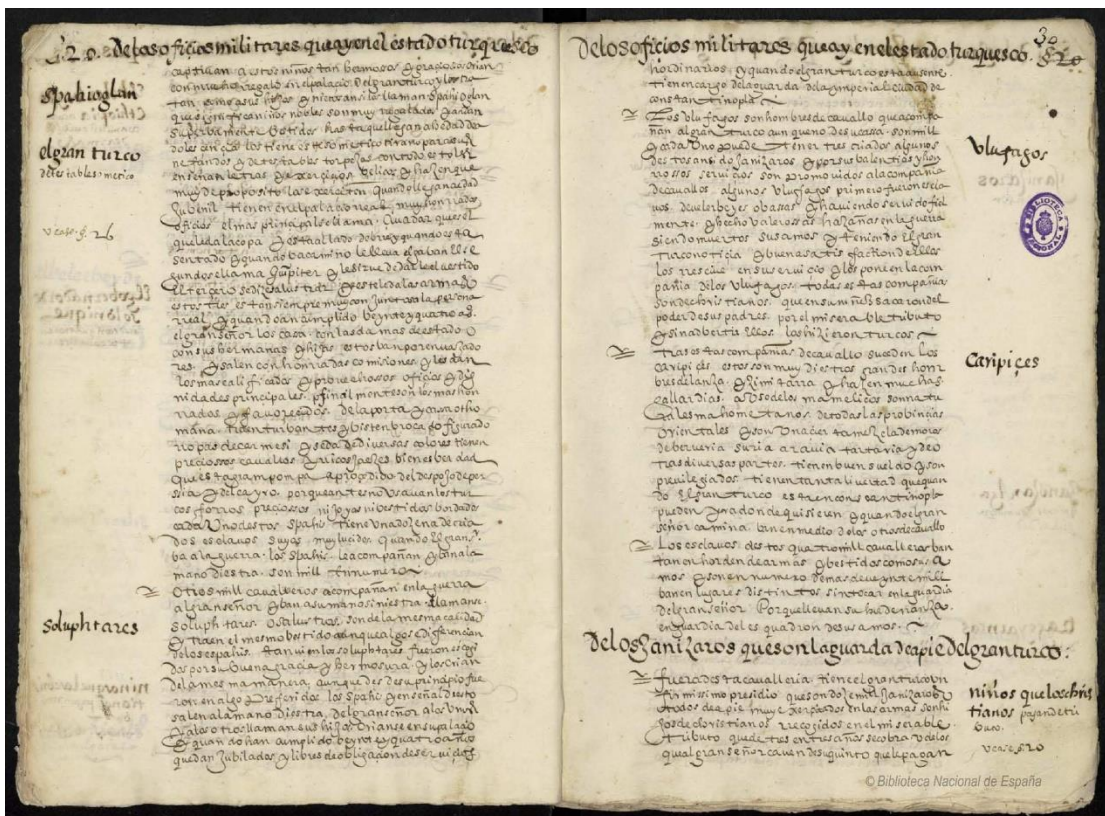 § 20. De los oficios militares que ay en el estado turquesco
captivan a estos niños tan hermosos & graciosos crian
con mucho regalo en el palacio Del gran turco y los tra
tan como a sus hijos & nietos ansi los llaman Spahi oglan
que significa niños nobles son muy regalados & andan
superbamente bestidos hasta que llegan a hedad de
Spahioglan
doles cinco los tiene este so metico tirano para sus
ne fandos & detestables torpezas con todo esto les
enseñan letras & exerçiçios belicos & hazen que
muy de proposito las exerciten quando llegan a edad
Jubenil tienen en el palacio real muy honrrados
oficios el mas principal se llama
el gran turco
detestable metico
vease §. 26
que le da la copa & esta al lado do bre y quando esta
sentado & quando ba camino le lleva el gavan El se
gundo se llama & le sirve de darle el vestido
El tercero se dize & este le da las armas
estos tres estan siempre muy conjuntos a la persona
real & quando an cumplido beynte y quatro aos
el gran señor los casa con las damas de estado
con sus hermanas & hijas estos ban por enbaxado
res & salen con honrradas comisiones & les dan
los mas calificados & probechossos oficios & dig
nidades principales. finalmente son los mas hon
rrados & favoreçidos de la porta & casa otho
mana. traen turbantes & bisten brocado figurado
rropas de carmesi & seda de diversas colores tienen
preciossos cavallos & ricos jaezes bien es berdad
que esta gran pompa a proçedido del despojo de per
sia & del cayro. porque antes no usavan los tur
cos forros preciossos ni joyas ni bestidos bordados
cada Uno destos Spahi tiene Una dozena de cria
dos esclavos suyos muy lucidos quando El gran S.
ba a la guerra. los Spahis le acompañan & ban a la
mano diestra. son mill en numero
Otros mill cavalleros acompañan en la guerra
al gran señor & ban a su mano siniestra llamanse
Soluphtares
soluphtares. O salustros. son de la mesma calidad
& traen el mesmo bestido aunque algo se diferencian
de los espahis. tanvien los soluphtares fueron escogi
dos por su buena gracia & hermosura & los crian
de la mesma manera, aunque des de su principio fue
ron en algo preferidos los Spahi & en señal desto
salen a la mano diestra del gran señor a los Unos
& a los otros llaman sus hijos crianse en su palacio
& quando han cumplido beynte & quatro años
quedan Jubilados & libres de obligacion de servicios
De los oficios militares que ay en el estado turquesco. § 20
30
hordinarios, & quando el gran turco esta ausente
tienen cargo de la guarda de la ymperial ciudad de
constantinopla
Los Vlufagos son hombres de cavallo que acompa
ñan al gran turco aunque no de su cassa. son mill
& cada Uno puede tener tres criados algunos
Vlufagos
destos an sido Janizaros & por sus balentias y hon
rrossos servicios son promovidos a la compania
de cavallos. algunos Vlufagos primero fueron escla
vos de velerbeyes o bassas & haviendo servido fiel
mente. & hecho valerossas hazañas en la guerra
siendo muertos sus amos & teniendo El gran
turco noticia & buena satisfaction de ellos
los rescive en su servicio & los pone en la com
pañia de los Vlufagos. todas estas compañias
son de christianos que en su niñez sacaron del
poder de sus padres. por el miserable tributo
& sin adbertir ellos los hizieron turcos
tras estas compañias de cavallo suceden los
Caripiçes
caripiçes estos son muy diestros grandes hom
bres de lanza & zimitarra & hazen muchas
gallardias a Uso de los mamelucos son na tu
rales mahometanos de todas las probinçias
orientales & son Una çierta mezcla de moros
de berveria suria aravia tartaria & de o
tras diversas partes. tienen buen sueldo & son
previlegiados tienen tanta livertad que quan
do El gran turco esta en constantinopla
pueden yr a donde quisieren & quando el gran
señor camina ban en medio de los otros de cavallo
Los esclavos destos quatro mill cavalleros ban
tan en horden de armas & bestidos como sus a
mos & son en numero de mas de veynte mill
ban en lugares distintos sin tocar en la guardia
del gran señor Porque llevan su hordenanza
en guardia del esquadron de sus amos.
De los Janizaros que son la guarda de a pie Del gran turco:
fuera desta cavalleria tiene el gran turco Un
firmissimo presidio que son doze mill Janizaros
todos de a pie muy exerçitados en las armas son hi
jos de christianos recogidos en el miserable
tributo que de tres en tres años se cobra de los
quales gran señor caven de su quinto que le pagan
niños que los chris
tianos pagan de tri
buto.
vease §. 20
© Biblioteca Nacional de España